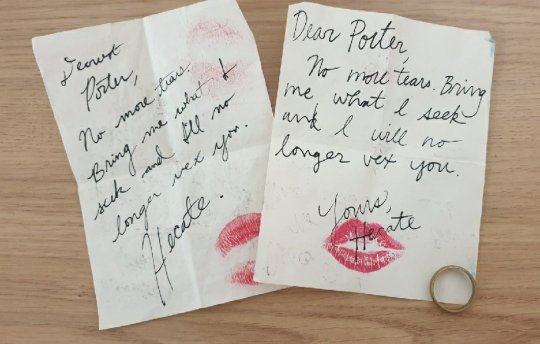 Dearest
Porter,
No more tears.
Bring me what I
seek and I'll no
longer vex you.
Hecate.
Dear Porter,
No more tears. Bring
me what I seek
and I will no
longer vex you.
Yours,
Hecate